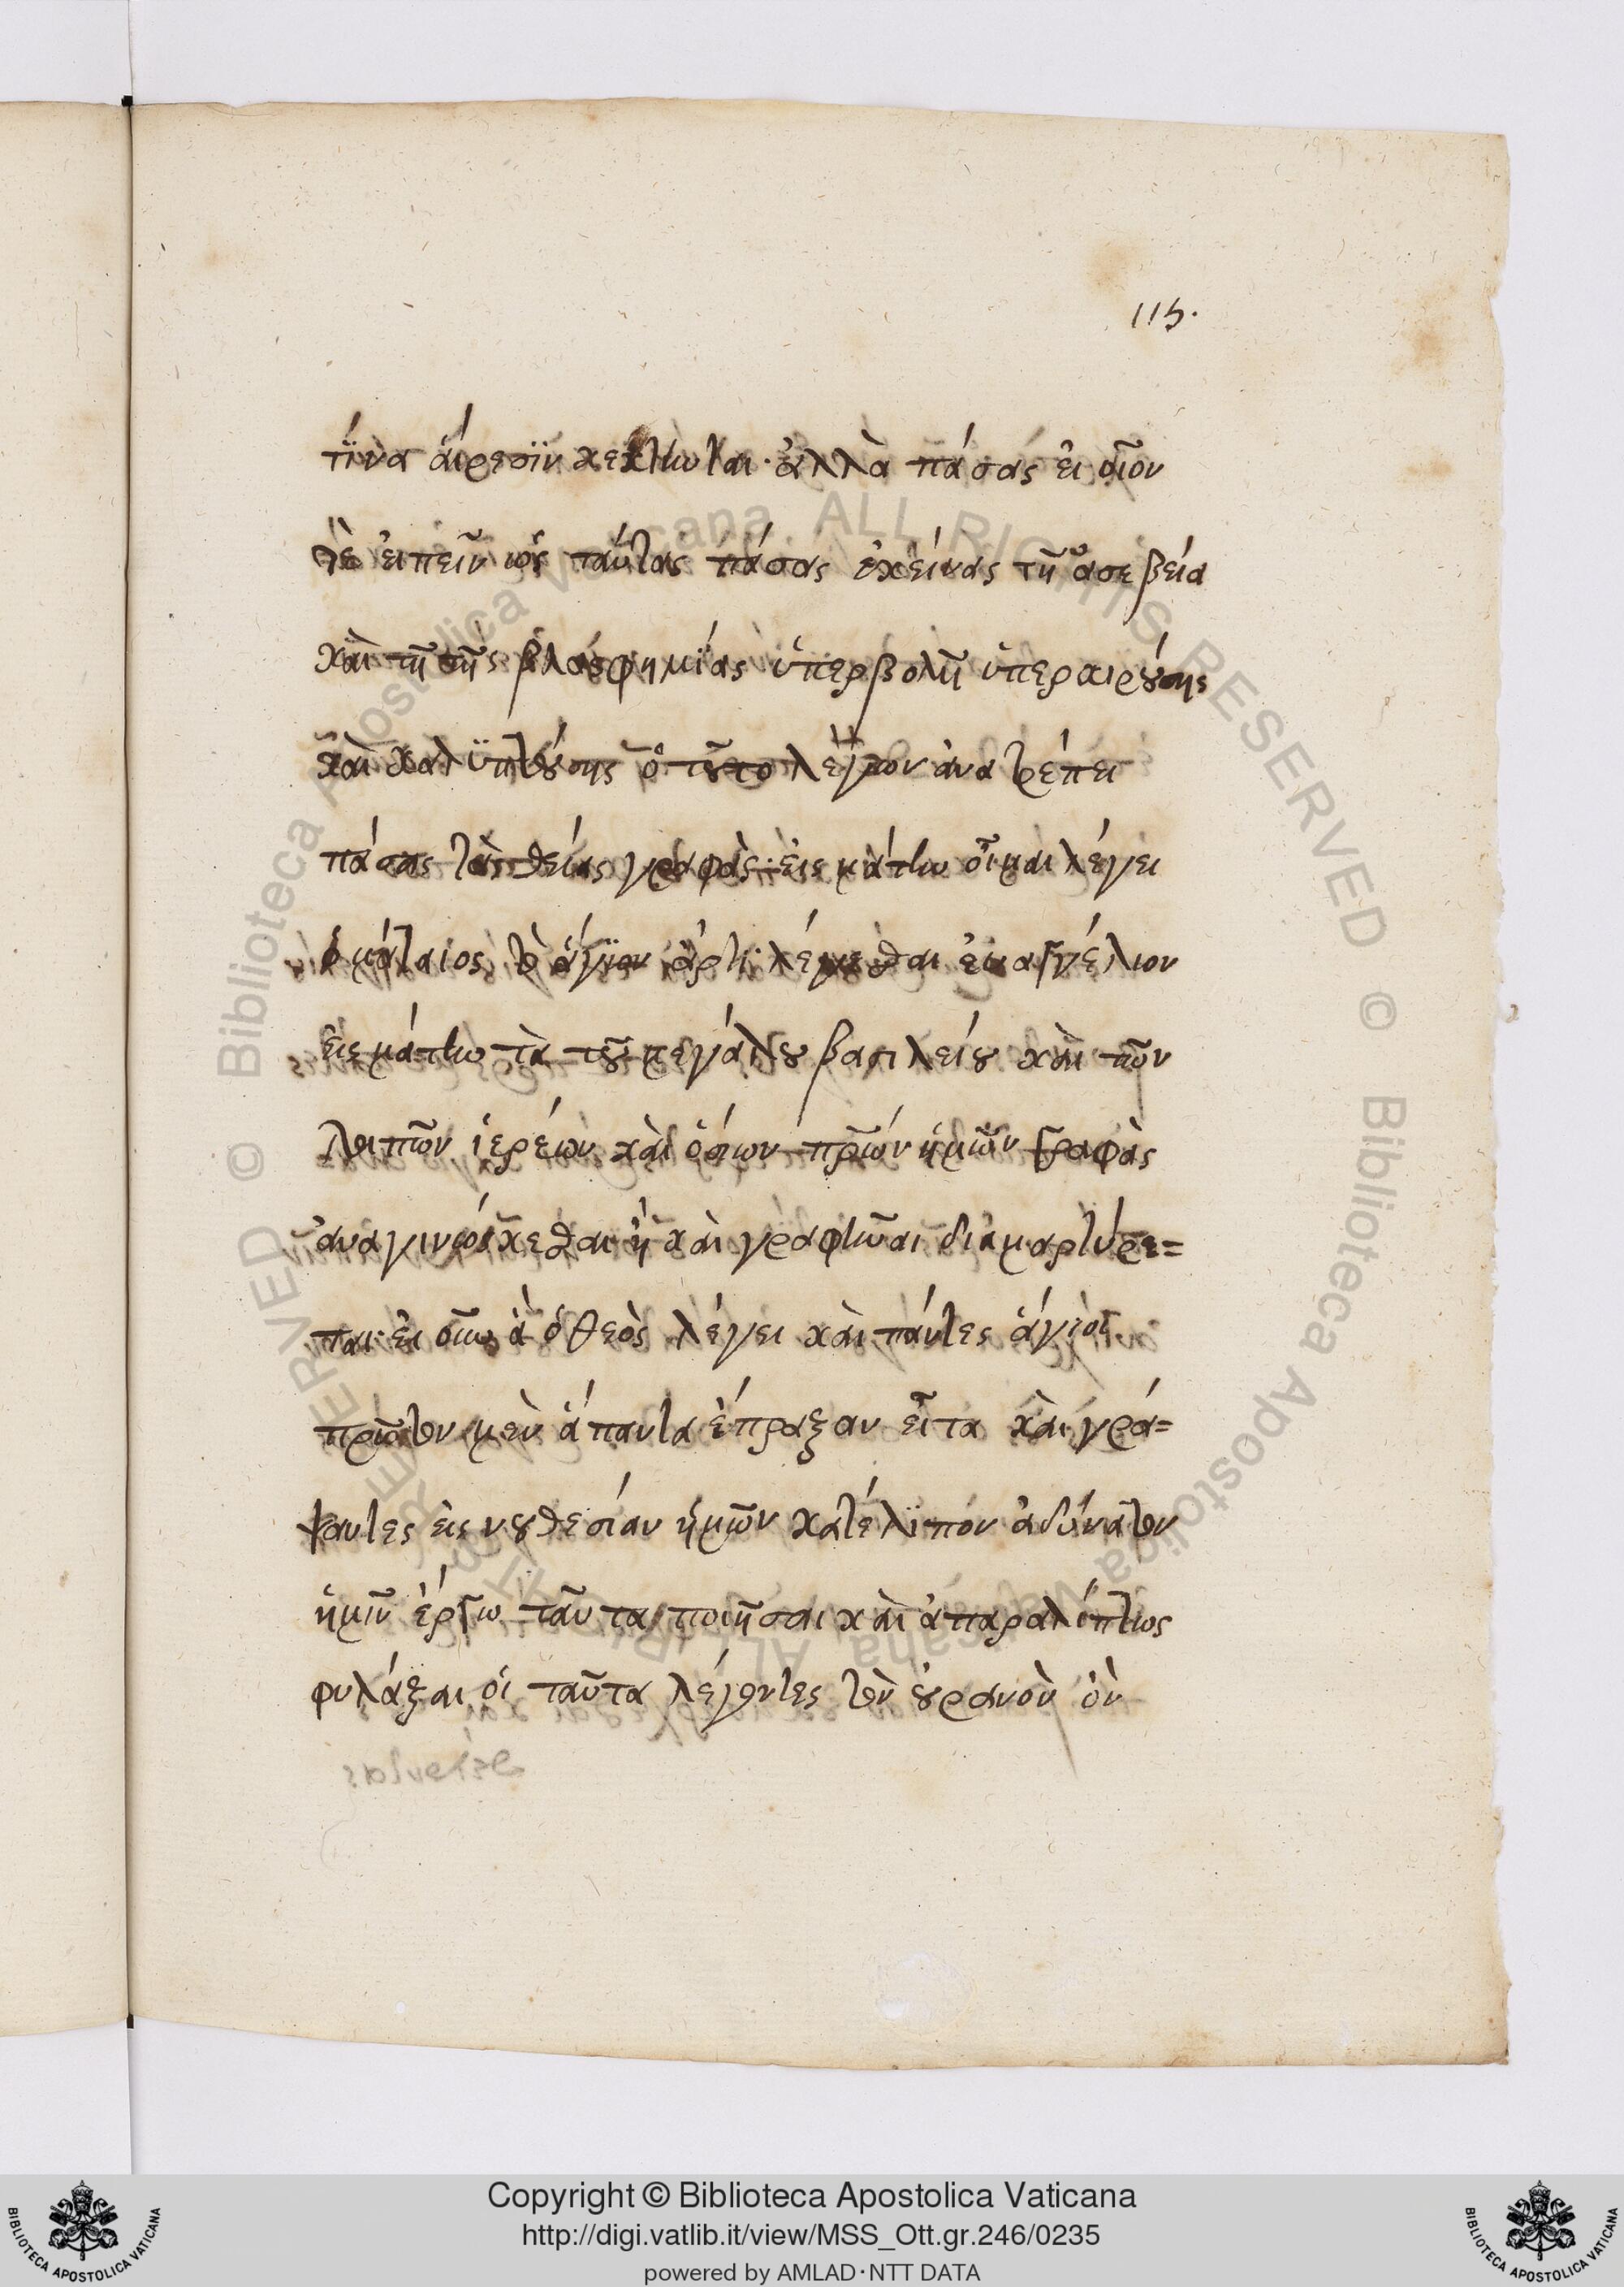 115.
τινὰ αἵρεσιν κέκτηνται· ἀλλὰ πάσας εἰ οἷον
τὲ εἰπεῖν ὡς ταύτας πάσας ἐκείνας τῇ ἀσεβεία
καὶ τῇ τῆς βλασφημίας ὑπερβολῇ ὑπεραιρούσης
καὶ καλυπτούσης ὁ τοῦτο λέγων ἀνατρέπει
πάσας τὰς θείας γραφάς· εἰς μάτην οἶμαι λέγει
ὁ μάταιος τὸ ἅγιον ἄρτι λέγεσθαι εὐαγγέλιον
εἰς μάτην τὰ τοῦ μεγάλου βασιλείου καὶ τῶν
λοιπῶν ἱερέων καὶ ὁσίων πρῶν ἡμῶν γραφὰς
ἀναγινώσκεσθαι ἢ καὶ γραφῆναι διαμαρτύρε=
ται· εἰ οὖν ἃ ὁ θεὸς λέγει καὶ πάντες ἅγιοι
πρῶτον μὲν ἅπαντα ἔπραξαν εἶτα καὶ γρά=
ψαντες εἰς νουθεσίαν ἡμῶν κατέλιπον ἀδύνατον
ἡμῖν ἔργω ταῦτα ποιῆσαι καὶ ἀπαραλείπτως
φυλάξαι οἱ ταῦτα λέγοντες τὸν οὐρανὸν ὃν
Copyright © Biblioteca Apostolica Vaticana
http://digi.vatlib.it/view/MSS_Ott.gr.246/0235
powered by AMLAD·NTT DATA
BIBLIOTECA APOSTOLICA VATICANA
BIBLIOTECA APOSTOLICA VATICANA
© Biblioteca Apostolica Vaticana. ALL RIGHTS RESERVED
© Biblioteca Apostolica Vaticana. ALL RIGHTS RESERVED